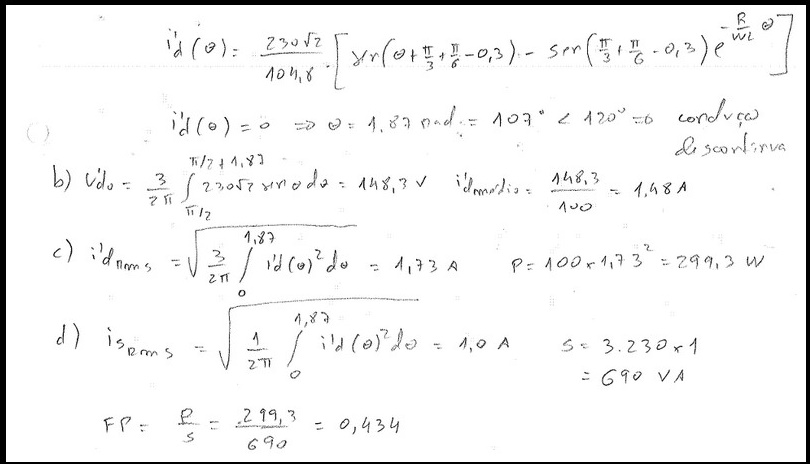 i'd(θ) = 230√2/104,8 · [sen(θ+π/3+π/6-0,3) - sen(π/3+π/6-0,3) e^(-R/WL θ)]
i'd(θ) = 0 => θ = 1,87 rad = 107° < 120° => condução descontínua
b) Vdo = 3/2π ∫_(π/2)^(π/2+1,87) 230√2 sen θ dθ = 148,3 V   i'dmédio = 148,3/100 = 1,48 A
c) i'dRms = √(3/2π ∫_0^(1,87) i'd(θ)² dθ) = 1,73 A   P = 100 x 1,73² = 299,3 W
d) isRms = √(1/2π ∫_0^(1,87) i'd(θ)² dθ) = 1,0 A   S = 3.230x1
= 690 VA
FP = P/S = 299,3/690 = 0,434